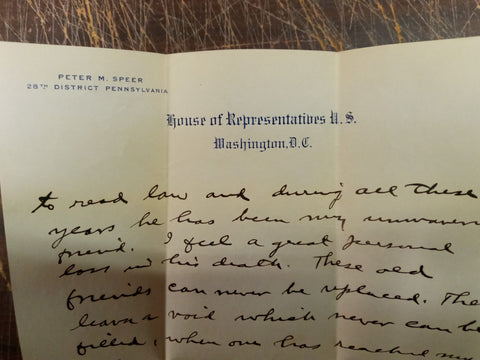 PETER M. SPEER
28TH DISTRICT PENNSYLVANIA
House of Representatives U.S.
Washington, D.C.
to read law and during all these
years he has been my unwaver
friend. I feel a great personal
loss in his death. These old
friends can never be replaced. The
leave a void which never can be
filled, when one has reached my